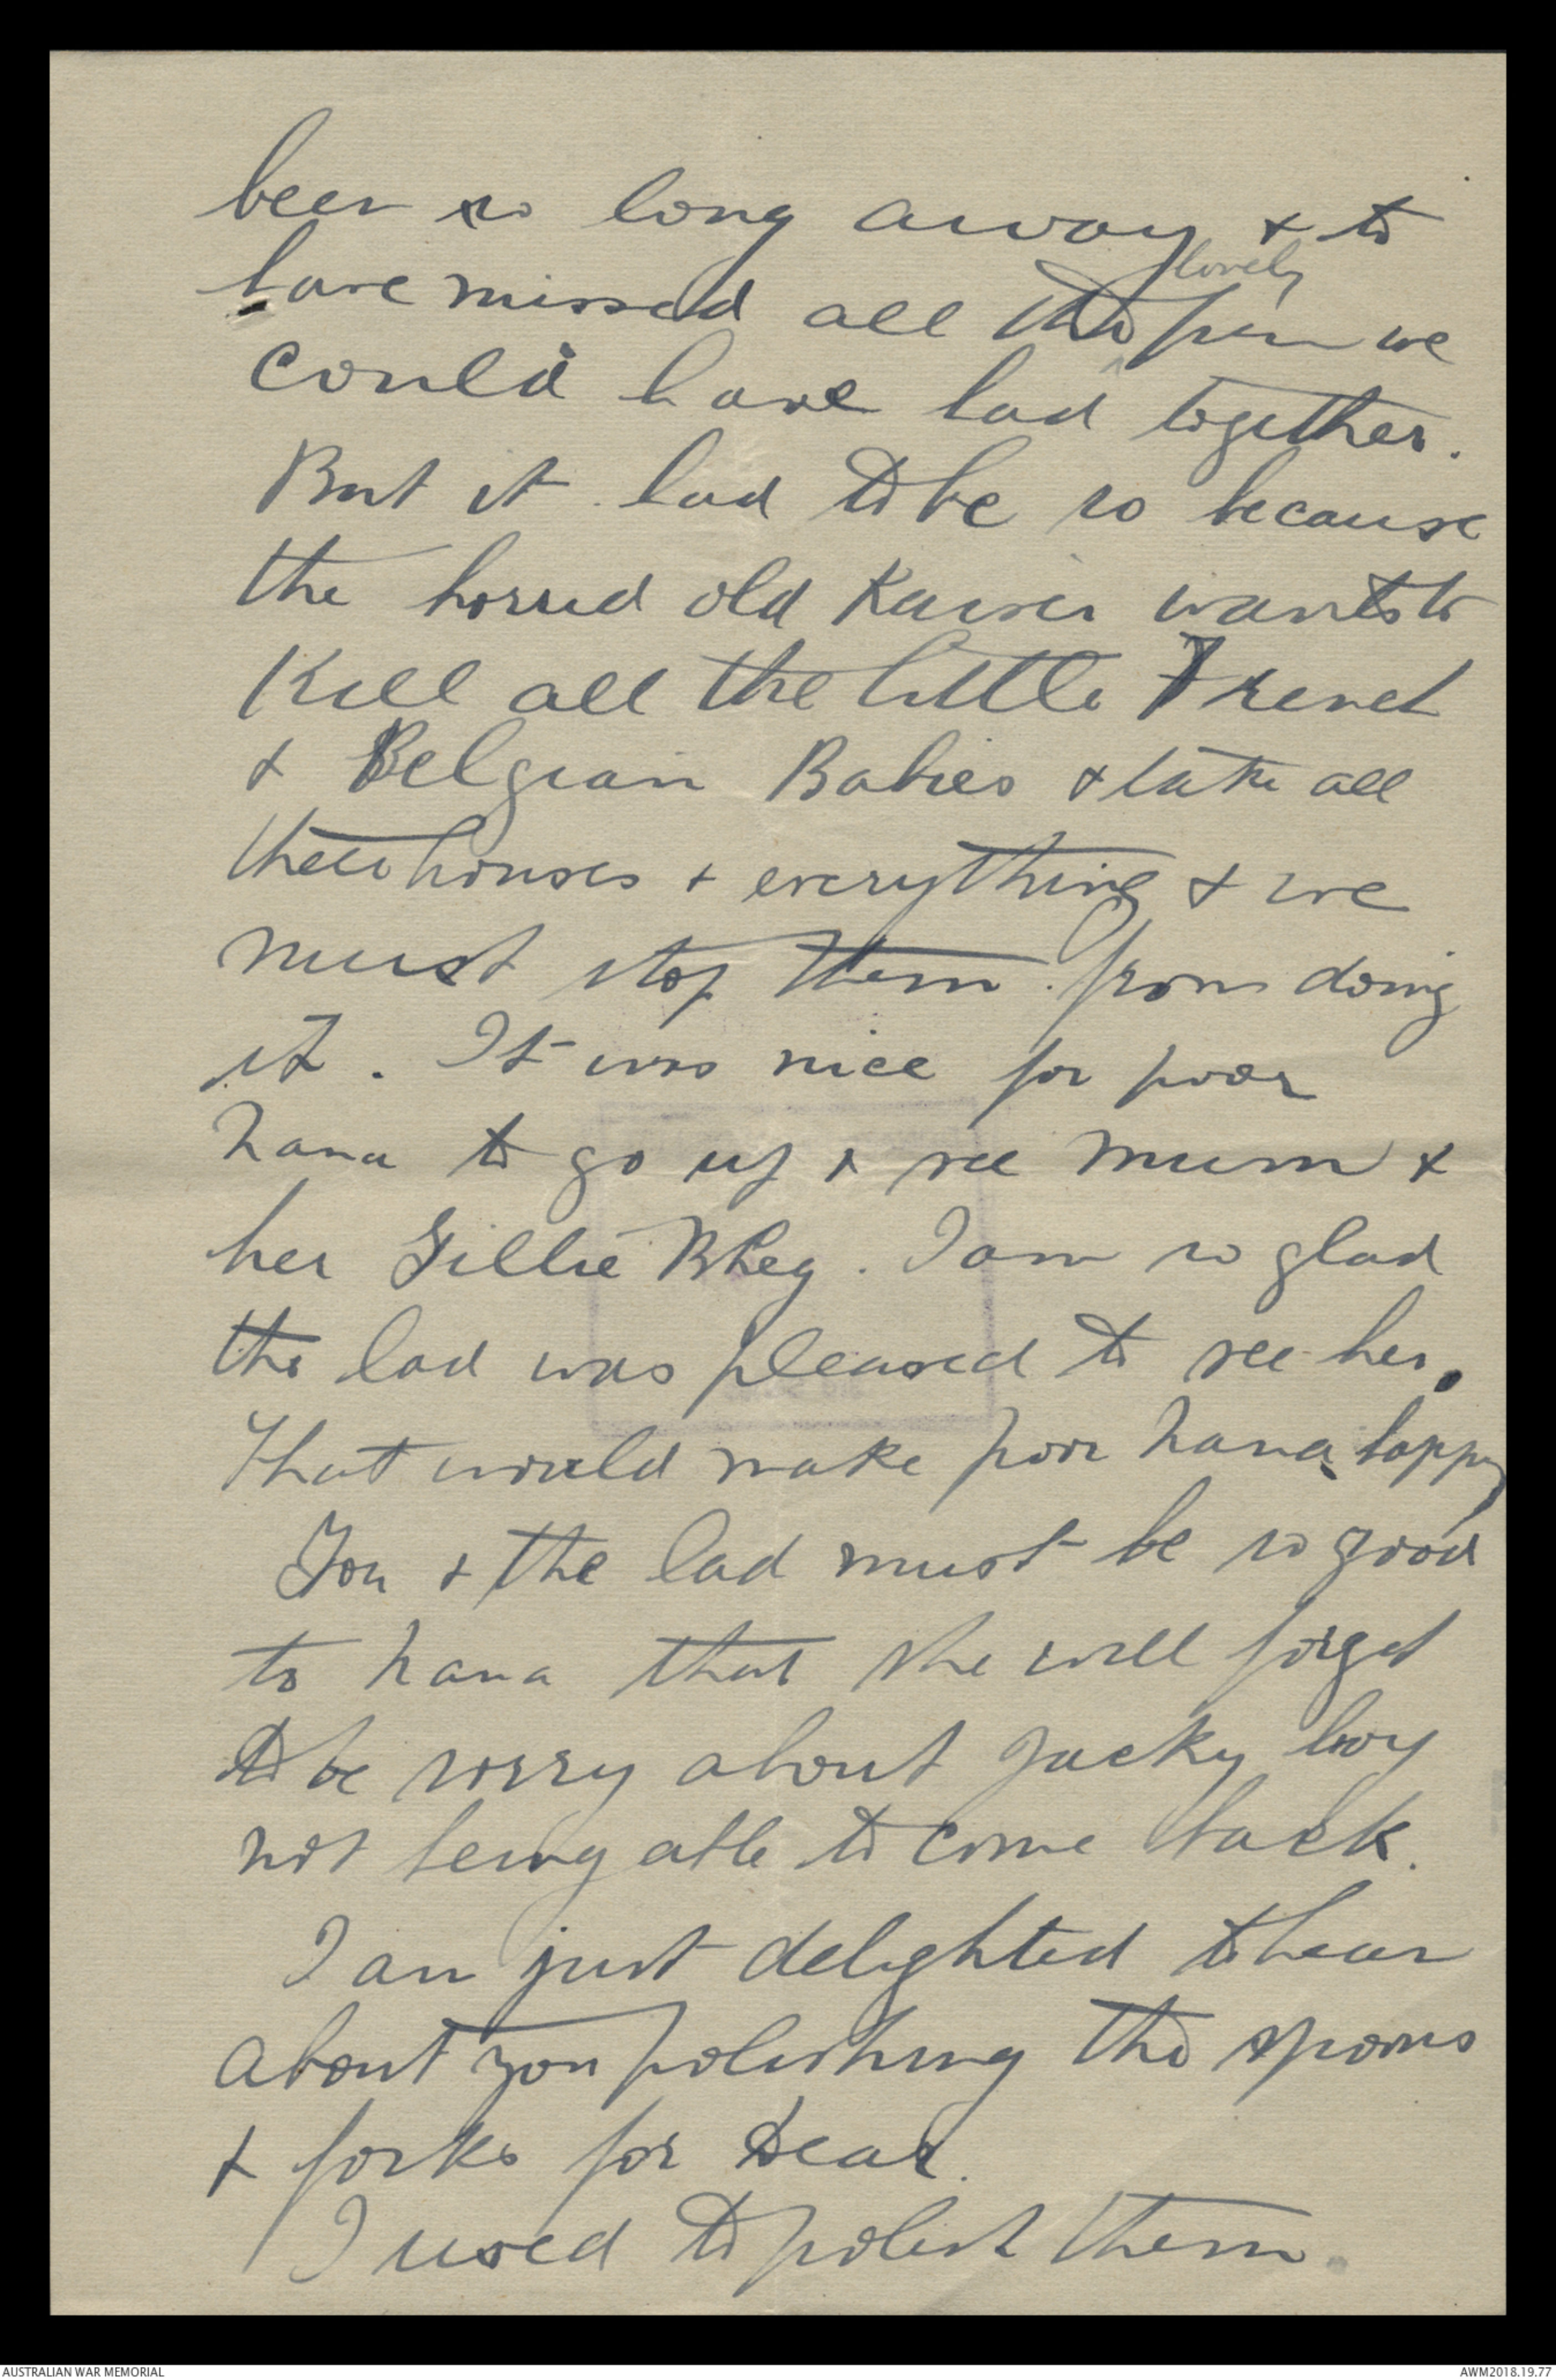 been so long away & to
have missed all the lovely fun we
could have had together.
But it had to be so because
the horrid old Kaiser wants to
Kill all the little French
& Belgian Babies & take all
their houses & everything & we
must stop them from doing
it. It was nice for poor
Nana to go up & see Mum &
her Gillie Bheg. I am so glad
the lad was pleased to see her.
That would make poor Nana happy
You & the lad must be so good
to Nana that she will forget
to be sorry about Jacky boy
not being able to come back.
I am just delighted to hear
about you polishing the spoons
& forks for Dear.
I used to polish them.
AUSTRALIAN WAR MEMORIAL
AWM2018.19.77